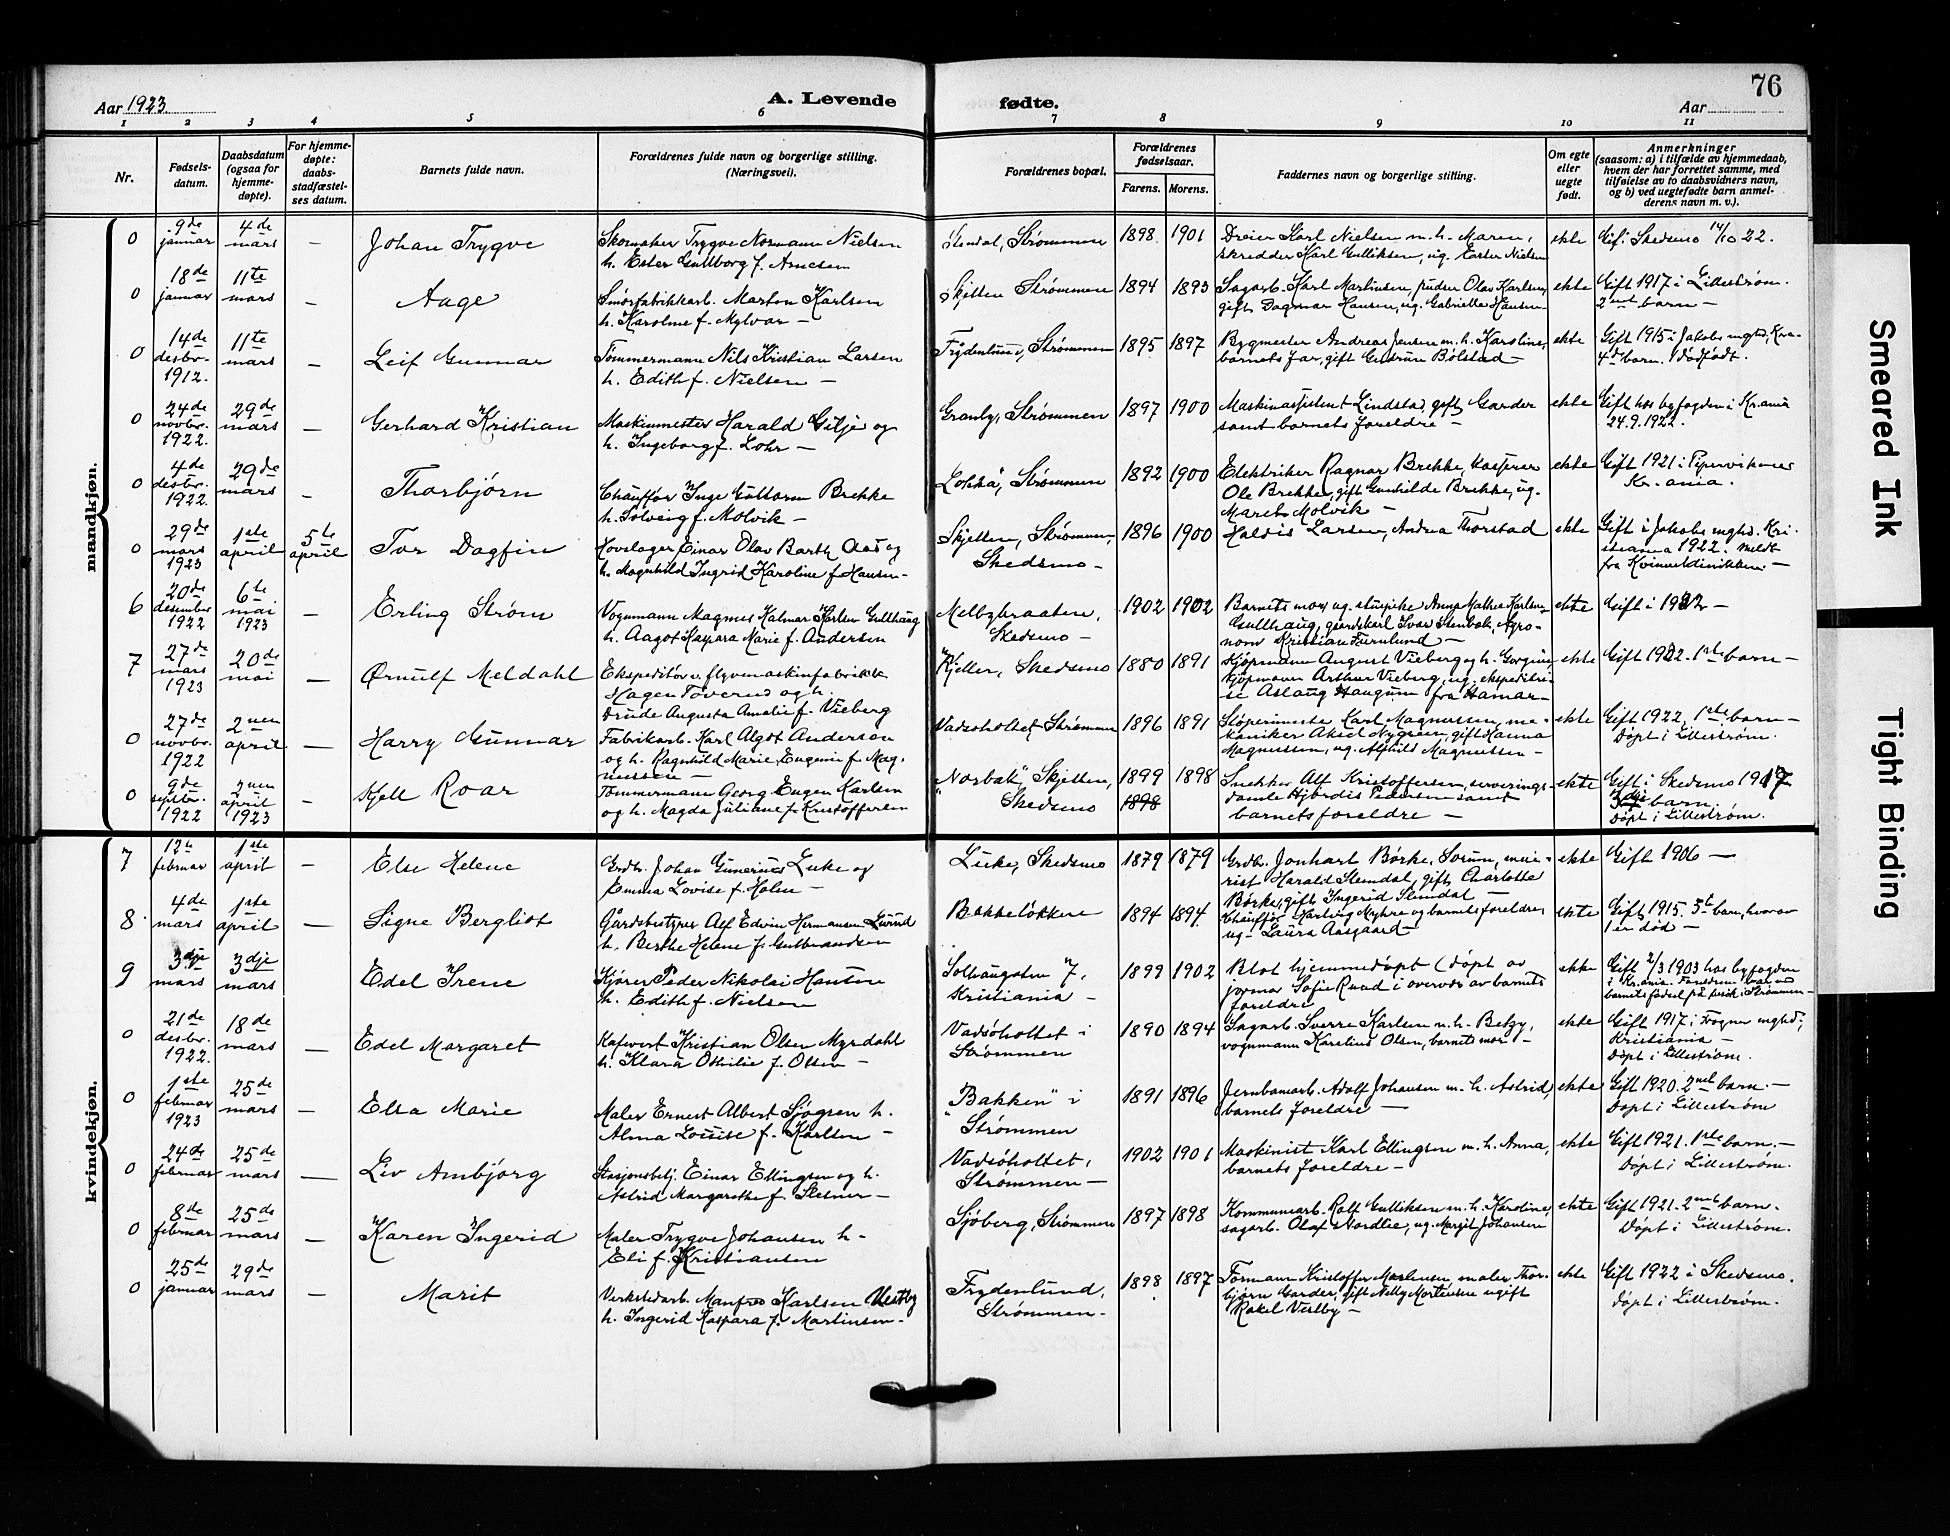 76
Aar 1923
A. Levende fødte.
Aar
1 2 3 4 5 6 7 8 9 10 11
Nr.
Fødsels-
datum.
Daabsdatum
(ogsaa for
hjemme-
døpte).
For hjemme-
døpte:
daabs-
stadfæstel-
ses datum.
Barnets fulde navn.
Forældrenes fulde navn og borgerlige stilling.
(Næringsvei).
Forældrenes bopæl.
Forældrenes
fødselsaar.
Farens. Morens.
Faddernes navn og borgerlige stilling.
Om egte
eller
uegte
født.
Anmerkninger
(saasom: a) i tilfælde av hjemmedaab,
hvem der har forrettet samme, med
tilføielse av to daabsvidners navn,
og b) ved uegtefødte barn anmel-
derens navn m. v.).
mandkjøn.
0 9de januar 4de mars — Johan Trygve
Skomaker Trygve Normann Nielsen
h. Ester Gullborg f. Arnesen
Stendal, Strømmen 1898 1901
Dreier Karl Nielsen m. h. Maren,
skredder Karl Gulliksen, ug. Ester Nielsen
ekte Gift i Skedsmo 14/10 22.
0 18de januar 11te mars — Aage
Smørfabrikkarb. Marton Karlsen
h. Karoline f. Mylvar —
Skjetten Strømmen 1894 1893
Sagarb. Karl Martinsen, pudser Olav Karlsen,
gift Dagmar Hansen, ug. Gabrielle Hansen
ekte Gift 1917 i Lillestrøm.
2net barn —
0 14de desbr. 1912. 11te mars — Leif Gunnar
Tømmermann Nils Kristian Larsen
h. Edith f. Nielsen —
Frydenlund, Strømmen 1895 1897
Bygmester Andreas Jensen m. h. Karoline,
barnets far, gift Gudrun Bølstad —
ekte Gift 1915 i Jakobs mghd, Kra-
4de barn. 1 dødfødt.
0 24de novbr. 1922. 29de mars — Gerhard Kristian
Maskinmester Harald Gilje og
h. Ingeborg f. Lohr —
Granly, Strømmen 1897 1900
Maskinassistent Lindstad, gift Garder
samt barnets foreldre —
ekte Gift hos byfogden i Kr.ania
24.9.1922.
0 4de desbr. 1922 29de mars — Thorbjørn
Chauffør Inge Guttorm Brekke
h. Solveig f. Molvik —
Løkka, Strømmen 1892 1900
Elektriker Ragnar Brekke, kasserer
Ole Brekke, gift Gunhilde Brekke, ug.
Marets Molvik —
ekte Gift 1921 i Pipervikenes
Kr.ania.
0 29de mars 1923 1ste april 5te april Tor Dagfin
Hovslager Einar Olav Barth Aas og
h. Magnhild Ingrid Karoline f. Hansen —
Skjetten, Strømmen,
Skedsmo — 1896 1900
Haldis Larsen, Andrea Thorstad
ekte Gift i Jakobs mghd. Kri-
stiania 1922. Meldt
fra Kvindeklinikken —
6 20de desember 1922 6te mai 1923 — Erling Strøm
Vognmann Magnus Halmar Karlsen Gullhaug
h. Aagot Kaspara Marie f. Andersen
Melbybraaten,
Skedsmo — 1902 1902
Barnets mor, ug. stuepike Anna Mathea Karlsen
Gullhaug, gaardskarl Ivar Stenbak, Agro-
nom Kristian Furulund —
ekte Gift i 1922 —
7 27de mars 1923 20de mai — Ørnulf Meldahl
Ekspeditør v. flyvemaskinfabrikk
Hagen Toverud og h.
Drude Augusta Amalie f. Vieberg
"Kjeller, Skedsmo 1880 1891
Kjøpmann August Vieberg og h. Georgine,
kjøpmann Arthur Vieberg, ug. ekspeditri-
se Aslaug Haugum fra Hamar —
ekte Gift 1922. 1ste barn —
0 27de novbr. 1922 2nen april — Harry Gunnar
Fabrikarb. Karl Algot Anderson
og h. Ragnhild Marie Eugenie f. Mag-
nussen —
Vadsøholtet, Strømmen 1896 1891
Støperimester Karl Magnussen, me-
kaniker Aksel Nygren, gift Hanna
Magnussen, ug. Alfhild Magnussen —
ekte Gift 1922, 1ste barn —
Døpt i Lillestrøm.
0 9de septbr. 1922 2nen april 1923 — Kjell Roar
Tømmermann Georg Eugen Karlsen
og h. Magda Juliane f. Kristoffersen
"Norbak", Skjetten,
Skedsmo 1899 1898 1898
Snekker Alf Kristoffersen, serverings-
damle Hjørdis Pedersen samt
barnets foreldre —
ekte Gift i Skedsmo 1917
3dje barn.
Døpt i Lillestrøm.
kvindekjøn.
7 12te februar 1ste april — Else Helene
Grdbr. Johan Gunerius Luke og
Emma Lovise f. Holm —
Luke, Skedsmo 1879 1879
Grdbr. Jonhart Børke, Sørum, meie-
rist Harald Stemdal, gift Charlotte
Børke, gift Ingerid Stemdal —
ekte Gift 1906 —
8 4de mars 1ste april — Signe Bergliot
Gårdsbestyrer Alf Edvin Hermansen Lund
h. Berthe Helene f. Gulbrandsen
Bakkeløkken 1894 1894
Chauffør Harling Myhre og barnets foreldre,
ug. Laura Aasgaard —
ekte Gift 1915. 5te barn, hvorav
1 er død —
9 3dje mars 3dje mars — Edel Irene
Kjører Peder Nikolai Hansen
h. Edith f. Nielsen
Solhaugaten 7,
Kristiania — 1899 1902
Blot hjemmedøpt (døpt av
jormor Sofie Ruud i overvær av barnets
foreldre
ekte Gift 2/3 1903 hos byfogden
i Kr.ania. Foreldrene var ved
barnets fødsel på besøk i Strømmen —
0 21de desbr. 1922 18de mars — Edel Margaret
Kafévert Kristian Olsen Myrdahl
h. Klara Othilie f. Olsen —
Vadsøholtet i
Strømmen 1890 1894
Sagarb. Sverre Karlsen m. h. Betzy,
vognmann Karelius Olsen, barnets mor —
ekte Gift 1917 i Frogner mghd.,
Kristiania —
Døpt i Lillestrøm.
0 1ste februar 1923 25de mars — Elsa Marie
Maler Ernest Albert Sjøgren h.
Alma Louise f. Karlsen —
"Bakken" i
Strømmen 1891 1896
Jernbanearb. Adolf Johansen m. h. Astrid,
barnets foreldre —
ekte Gift 1920. 2net barn. —
Døpt i Lillestrøm
0 24de februar 25de mars — Liv Ambjørg
Stasjonsbetj. Einar Ellingsen og h.
Astrid Margarethe f. Stesner —
Vadsøholtet,
Strømmen — 1902 1901
Maskinist Karl Ellingsen m. h. Anna,
barnets foreldre —
ekte Gift 1921. 1ste barn. —
Døpt i Lillestrøm.
0 8de februar 25de mars — Karen Ingerid
Maler Trygve Johansen h —
Eli f. Kristiansen
Sjøberg, Strømmen 1897 1898
Kommunearb. Rolf Gulliksen m. h. Karoline,
sagarb. Olaf Nordlie, ug. Margit Johansen
ekte Gift 1921. 2net barn.
Døpt i Lillestrøm.
0 25de januar 29de mars — Marit
Verkstedarb. Manfred Karlsen Vestby
h. Ingerid Kaspara f. Martinsen —
Frydenlund,
Strømmen — 1898 1897
Formann Kristoffer Mortensen, maler Thor-
bjørn Garder, gift Nelly Mortensen ugift
Rakel Vestby —
ekte Gift 1922 i Skedsmo.
Døpt i Lillestrøm.
Smeared Ink
Tight Binding